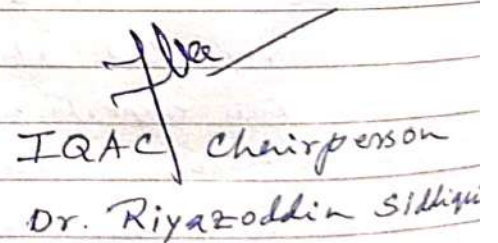 IQAC Chairperson
Dr. Riyazoddin Siddiqui